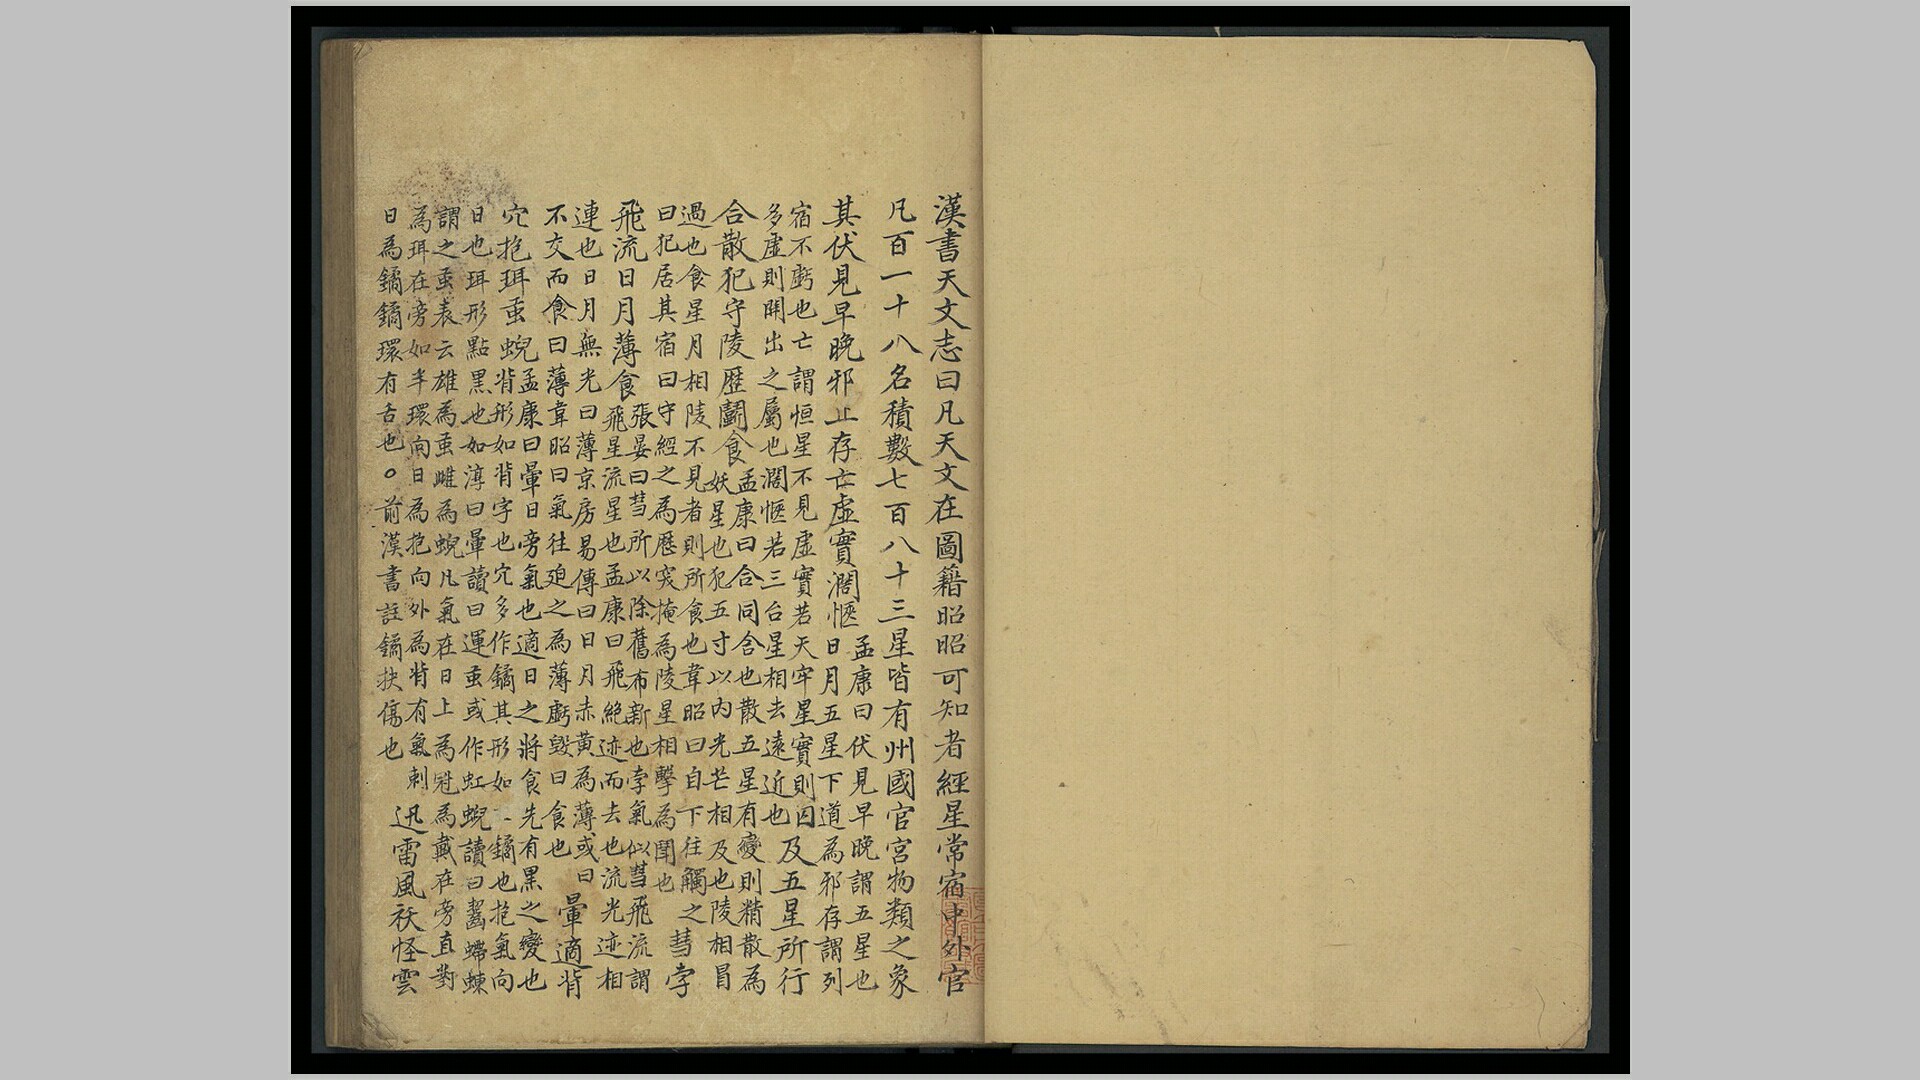 漢書天文志曰凡天文在圖籍昭昭可知者經星常宿中外官
凡百一十八名積數七百八十三星皆有州國官宮物類之象
其伏見早晚邪止存亡虛實濶愜
孟康曰伏見早晚謂五星也
日月五星下道為邪存謂列
宿不虧也亡謂恒星不見虛實若天牢星實則囚
多虛則開出之屬也濶愜若三台星相去遠近也
及五星所行
合散犯守陵歷鬭食
孟康曰合同舍也散五星有變則精散為
妖星也犯五寸以内光芒相及也陵相冒
過也食星月相陵不見者則所食也韋昭曰自下往觸之
曰犯居其宿曰守經之為歷突掩為陵星相擊為鬪也
彗孛
飛流日月薄食
張晏曰彗所以除舊布新也孛氣似彗飛流謂
飛星流星也孟康曰飛絶迹而去也流光迹相
連也日月無光曰薄京房易傳曰日月赤黃為薄或曰
不交而食曰薄韋昭曰氣往廹之為薄虧毀曰食也
暈適背
穴抱珥䖝蜺
孟康曰暈日旁氣也適日之將食先有黑之變也
背形如背字也穴多作鐍其形如鐍也抱氣向
日也珥形點黑也如淳曰暈讀曰運䖝或作虹蜺讀曰齧螮蝀
謂之䖝表云雄為䖝雌為蜺凡氣在日上為冠為戴在旁直對
為珥在旁如半環向日為抱向外為背有氣刺
日為鐍鐍環有舌也○前漢書註鐍抉傷也
迅雷風祅怪雲